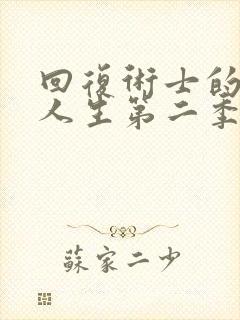 回復術士的
人生第二季
蘇家二少